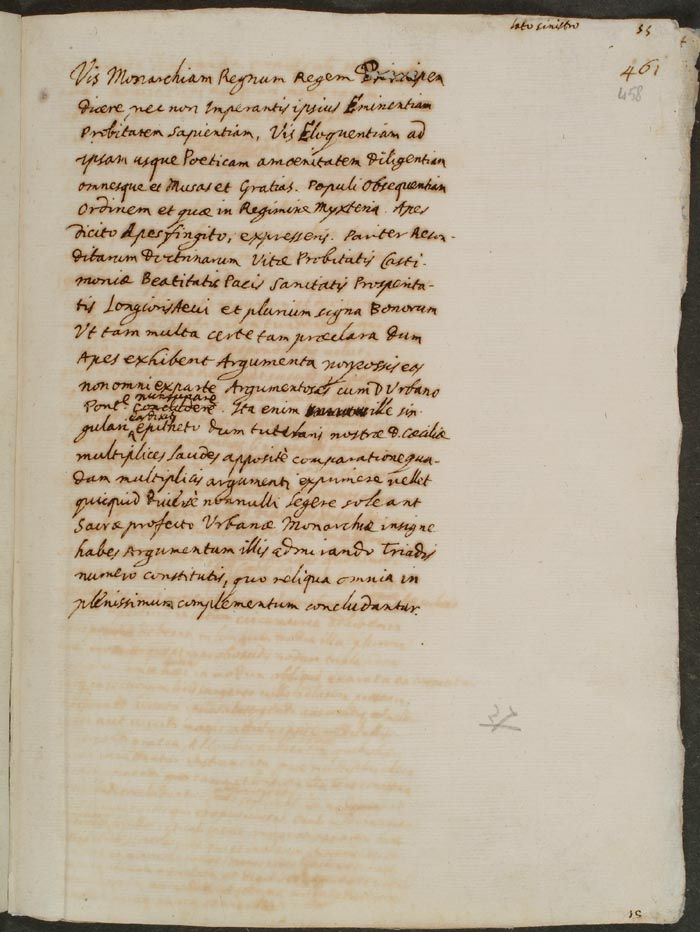 lato sinistro
55
461
458
Vis Monarchiam Regnum Regem Principem
dicere, nec non Imperantis ipsius Eminentiam
Probitatem Sapientiam, Vis Eloquentiam ad
ipsam usque Poeticam amoenitatem Diligentiam
omnesque et Musas et Gratias. Populi Obsequentiam
Ordinem et quae in Regimine Myxteria. Apes
dicito Apes fingito, expresseris. Pariter Recon-
ditarum Doctrinarum Vitae Probitatis Casti-
moniae Beatitatis Pacis Sanitatis Prosperita-
tis Longioris Aevi et plurium signa Bonorum
Ut tam multa certe tam praeclara dum
Apes exhibent Argumenta non possis eas
non omni ex parte Argumentosas cum D Urbano
nuncupare
Pont.e concludere. Ita enim ille sin-
gulari epitheto dum tutelaris nostrae D. Caeciliae
multiplices laudes appositè comparatione qua-
dam multiplicis argumenti exprimere vellet
quicquid diversè nonnulli legere soleant
Sacrae profecto Urbanae Monarchiae insigne
habes Argumentum illis admirando Triadis
numero constitutis, quo reliqua omnia in
plenissimum complementum concludantur.